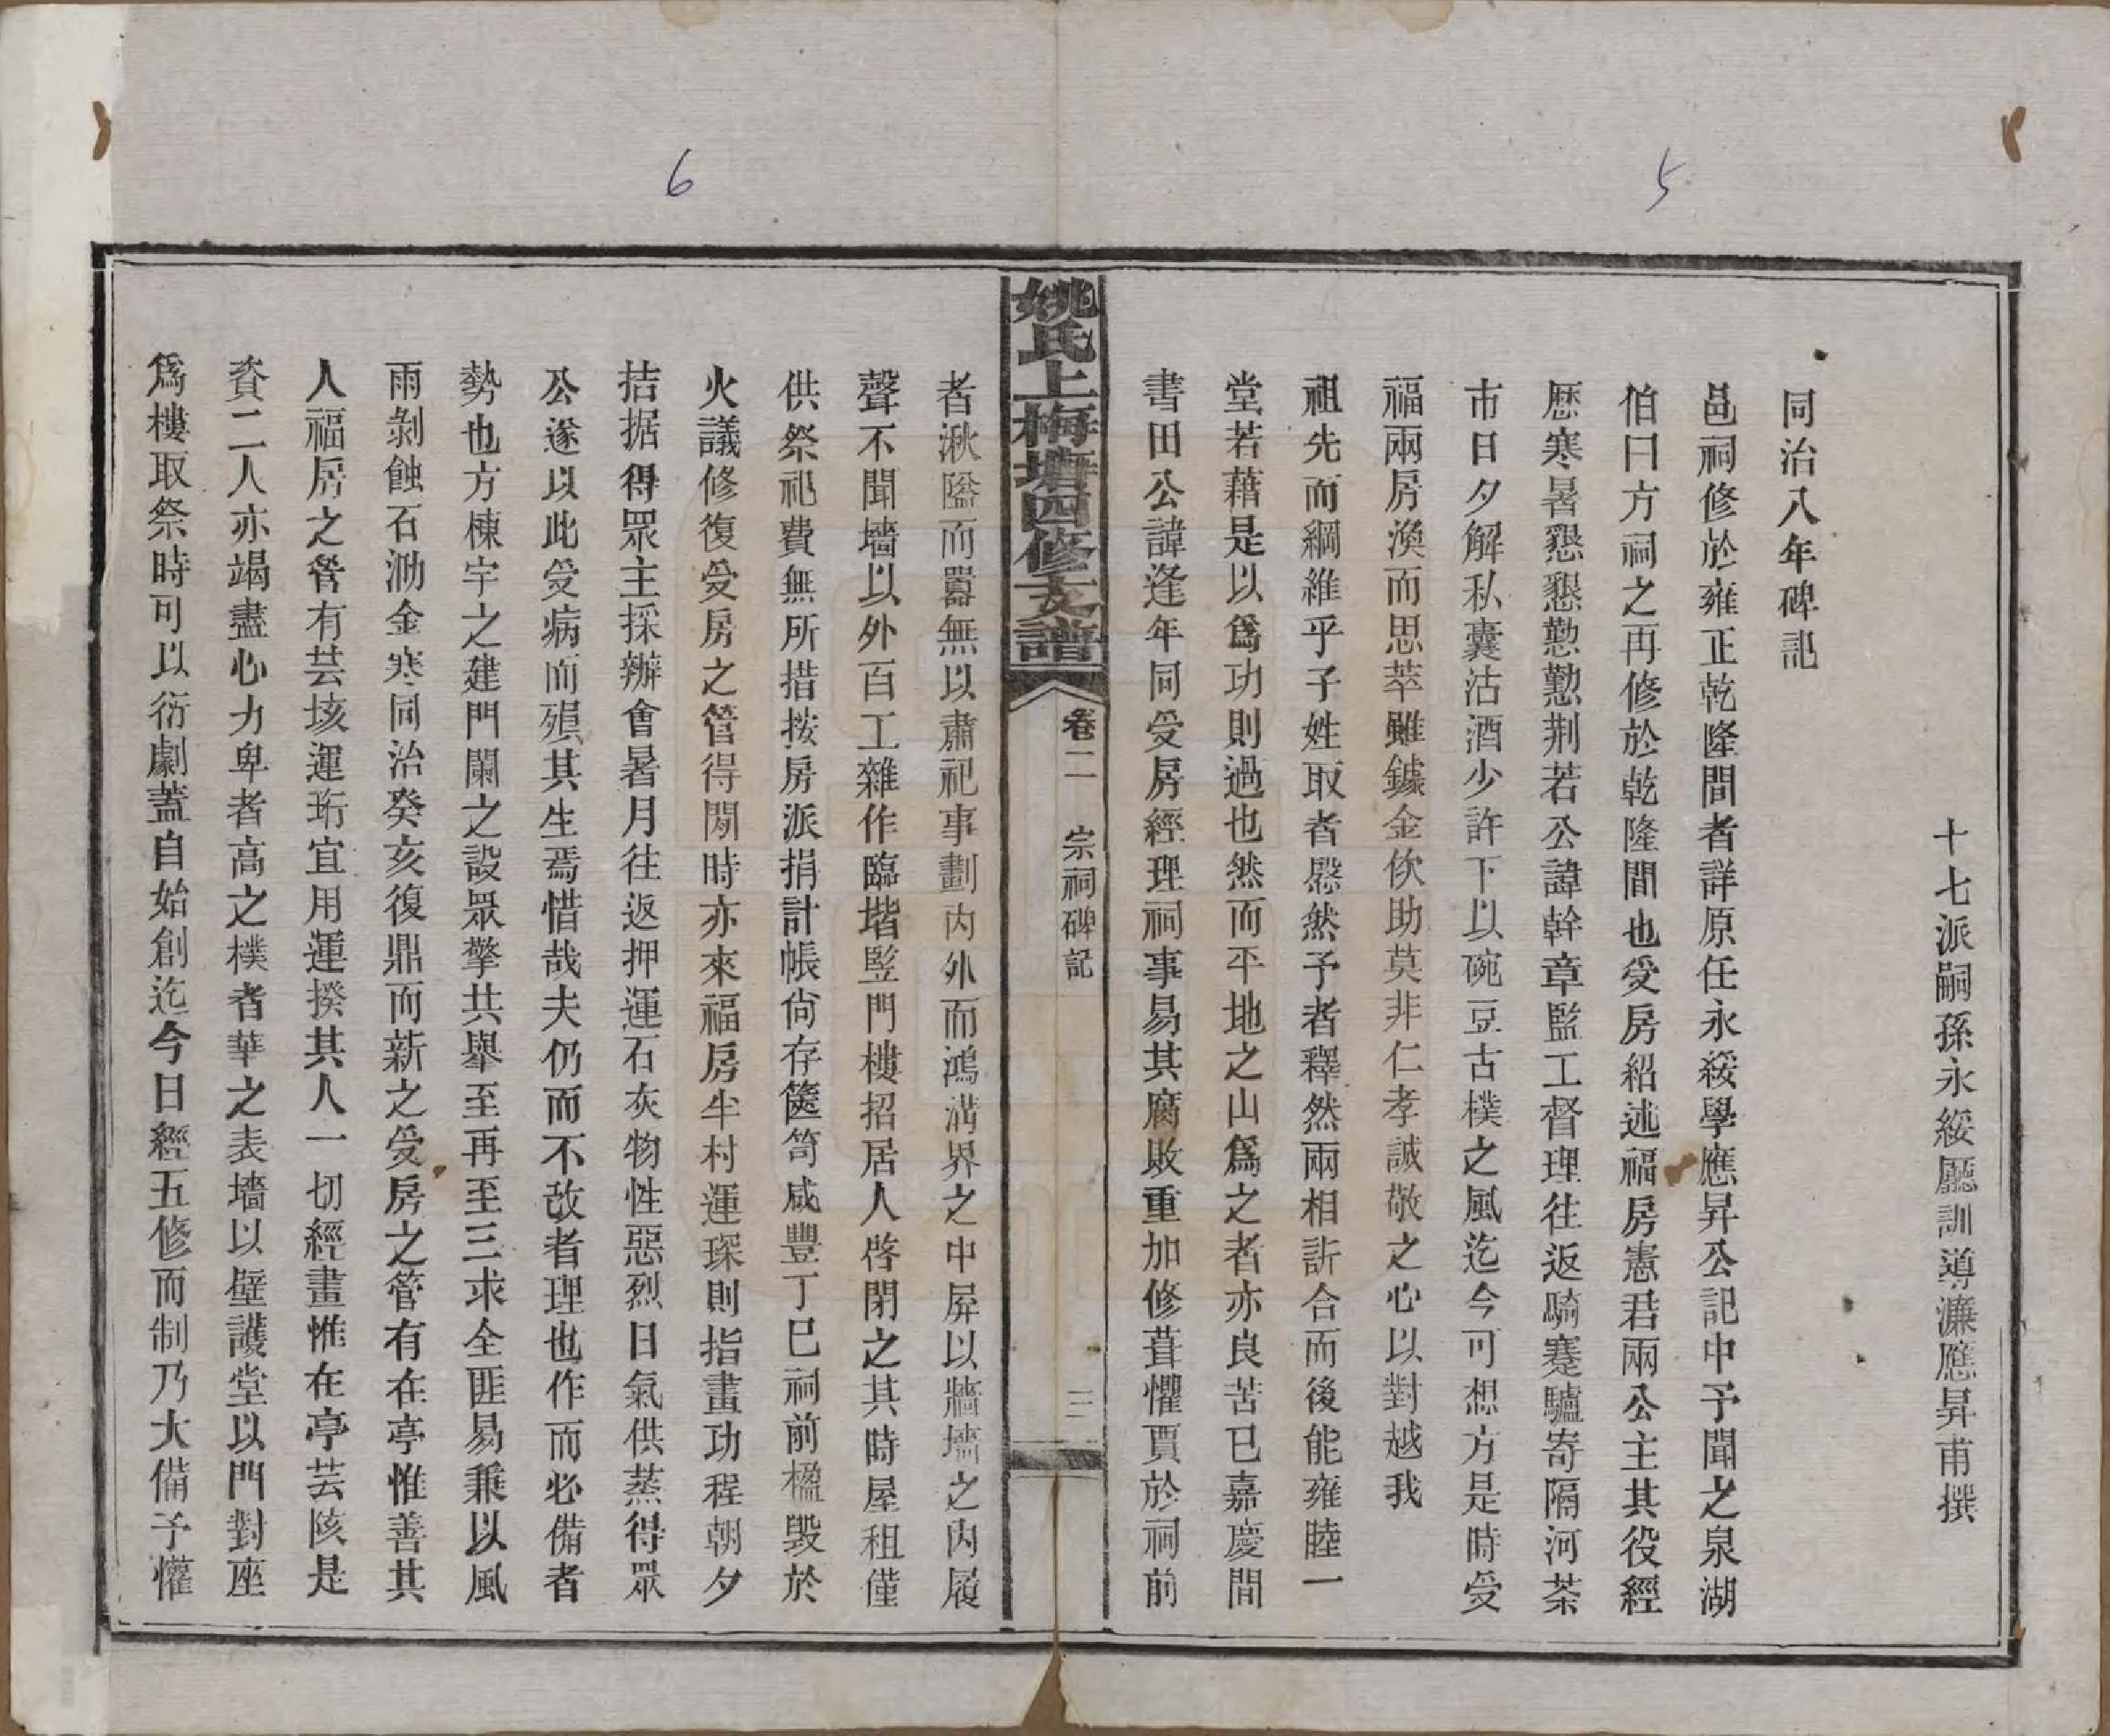 5
十七派嗣孫永綏廳訓導濂應昇甫撰
同治八年碑記
邑祠修於雍正乾隆間者詳原任永綏學應昇公記中予聞之泉湖
伯曰方祠之再修於乾隆間也受房紹述福房憲君兩公主其役經
歷寒暑懇懇懃懃荆若公諱幹章監工督理往返騎蹇驢寄隔河茶
市日夕解私囊沽酒少許下以碗豆古樸之風迄今可想方是時受
福兩房渙而思萃雖鐻金佽助莫非仁孝誠敬之心以對越我
祖先而綱維乎子姓取者愍然予者釋然兩相訢合而後能雍睦一
堂若藉是以爲功則過也然而平地之山爲之者亦良苦已嘉慶間
書田公諱逢年同受房經理祠事易其腐敗重加修葺懼賈於祠前
姚氏上梅塘四修支譜
卷二 宗祠碑記
三
6
者湫隘而囂無以肅祀事劃內外而鴻溝界之中屏以牆墻之內履
聲不聞墻以外百工雜作臨堦監門樓招居人啓閉之其時屋租僅
供祭祀費無所措按房派捐計帳尙存篋笥咸豐丁巳祠前楹毀於
火議修復受房之管得閒時亦來福房半村運琛則指畫功程朝夕
拮据得眾主採辦會暑月往返押運石灰物性惡烈日氣供蒸得眾
公遂以此受病而殞其生焉惜哉夫仍而不改者理也作而必備者
勢也方棟宇之建門闌之設眾擎共舉至再至三求全匪易兼以風
雨剝蝕石泐金寒同治癸亥復鼎而新之受房之管有在亭惟善其
人福房之管有芸垓運珩宜用運揆其人一切經畫惟在亭芸陔是
賚二人亦竭盡心力卑者高之樸者華之表墻以壁護堂以門對座
爲樓取祭時可以衍劇蓋自始創迄今日經五修而制乃大備予懼